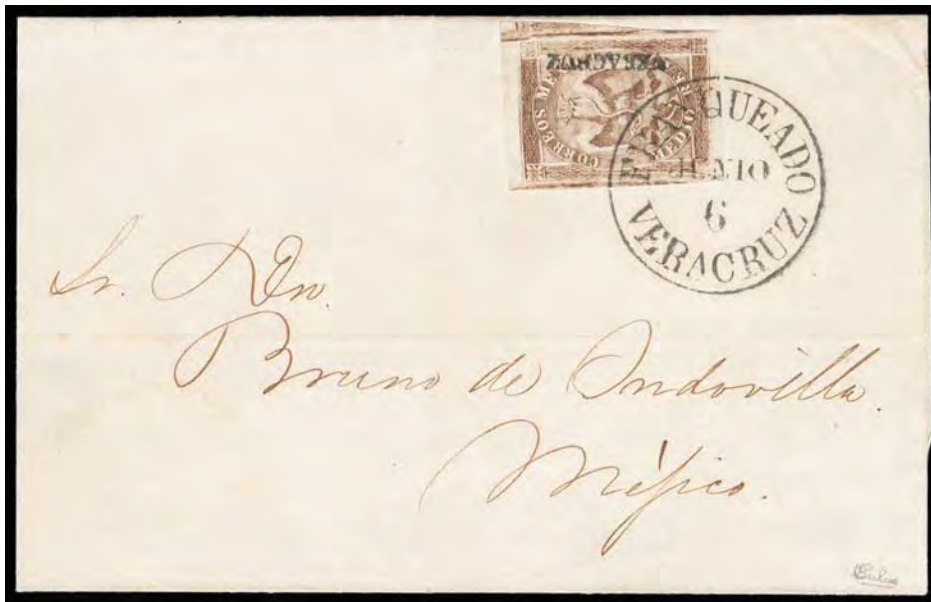 VERACRUZ
CORREOS ME
MEDIO REAL
FRANQUEADO
JUNIO
6
VERACRUZ
Sr. Dn.
Bruno de Ondovilla.
Méjico.